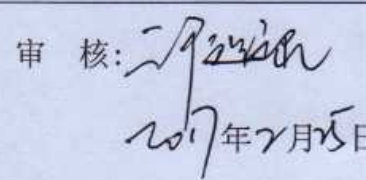 审 核:
2017年2月25日